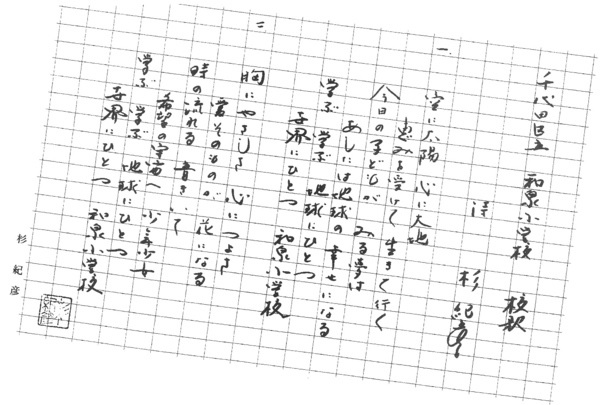 千代田区立 和泉小学校 校歌
詩 杉 紀彦
一
空に太陽 心に大地
恵みを受けて 生きて行く
今日の子どもが みる夢は
あしたには地球の 幸せになる
学ぶ 学ぶ 地球にひとつ
世界にひとつ 和泉小学校
二
胸にやさしさ 心につよさ
そのものが 花になる
時の流れる 音きいて
希望の宇宙へ 少年少女
学ぶ 学ぶ 地球にひとつ
世界にひとつ 和泉小学校
杉 紀彦